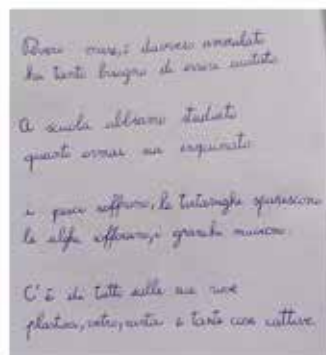 Povero mare, è davvero ammalato
ha tanto bisogno di essere aiutato.
A scuola abbiamo studiato
quanto ormai sia inquinato.
i pesci soffrono, le tartarughe spariscono
le alghe soffocano, i granchi muoiono.
C'è di tutto sulle sue rive
plastica, vetro, carta e tante cose cattive.